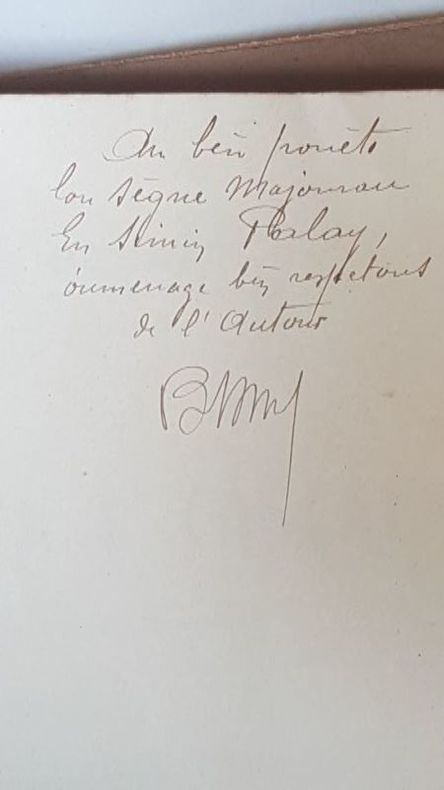 Au bèn pouèto
lou Segne Majourau
En Simin Palay,
óumenage bèn respetous
de l'Autour